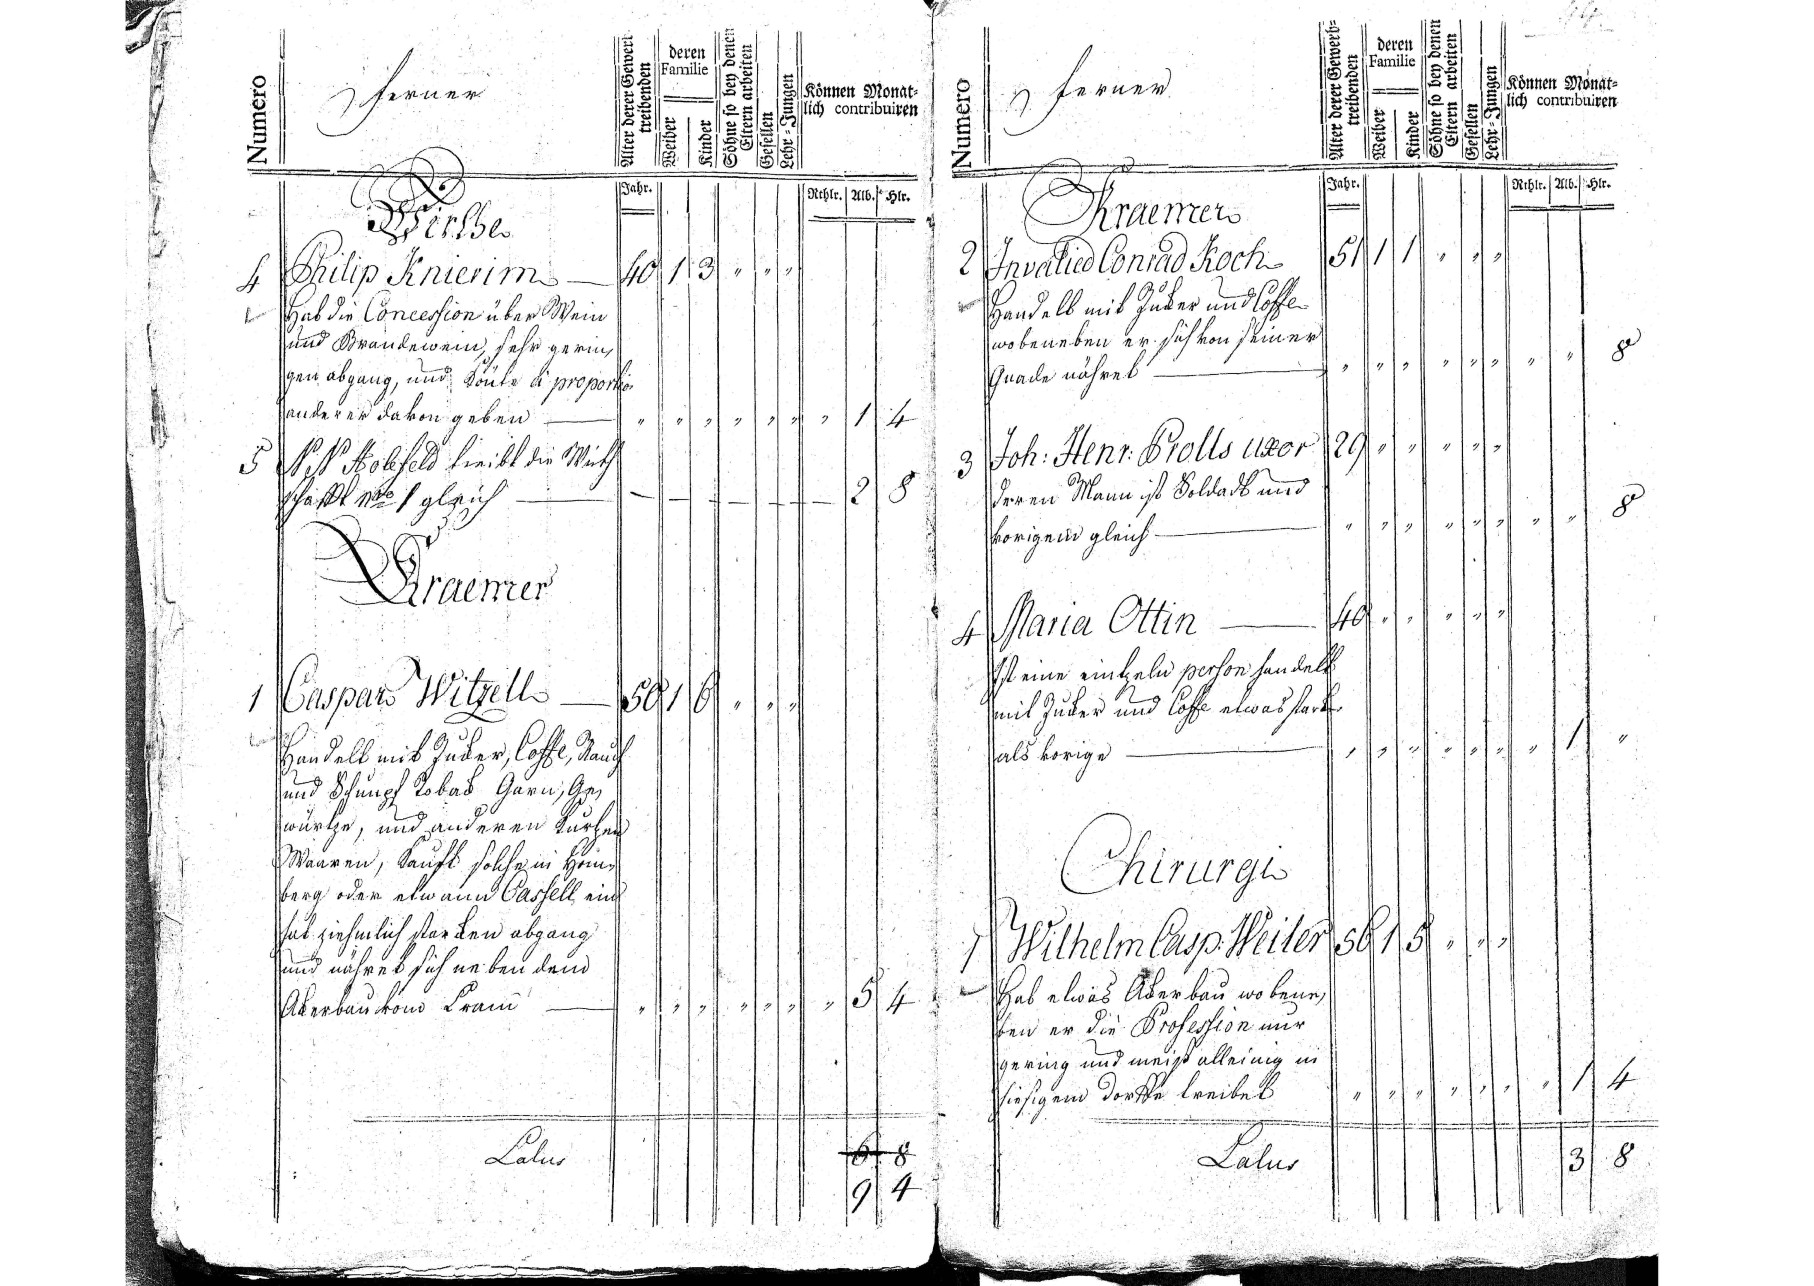 Numero
ferner
Alter derer Gewerbtreibenden
deren Familie
Weiber
Kinder
Söhne so bey denen Eltern arbeiten
Gesellen
Lehr-Jungen
Können Monat-
lich contribuiren
Jahr.
Rthlr. Alb. Hlr.
Wirthe
4 Philip Knierim — 40 1 3 " " "
Hat die Concession über Wein
und Brandewein, sehr gerin,
gen abgang, und könte à proportio
anderer davon geben — " " " " " " " 1 4
5 N N treibt die Wirth
schafft No 1 gleich — — — — — — — 2 8
Kraemer
1 Caspar Witzell — 50 1 6 " " "
Handelt mit Zucker, Coffe, Rauch
und Schnupf Toback Garn, Ge,
würtze, und anderen kurtzen
Waaren, kauft solche in Hom,
berg oder etwann Cassell ein
hat ziehmlich starcken abgang
und nähret sich neben dem
Akerbau vom Cram — " " " " " " " 5 4
Latus 6 8
9 4
Numero
ferner
Alter derer Gewerb-
treibenden
deren Familie
Weiber
Kinder
Söhne so bey denen Eltern arbeiten
Gesellen
Lehr-Jungen
Können Monat-
lich contribuiren
Jahr.
Rthlr. Alb. Hlr.
Kraemer
2 Invalied Conrad Koch 51 1 1 " " "
Handelt mit Zucker und Coffe
wobeneben er sich von seiner
Gnade nähret — " " " " " " " " 8
3 Joh: Henr: Prolls uxor 29 " " " " "
deren Mann ist Soldadt und
vorigem gleich — " " " " " " " " 8
4 Maria Ottin — 40 " " " " "
Ist eine eintzeln person handelt
mit Zucker und Coffe etwas starck
als vorige — " " " " " " " 1 "
Chirurgi
1 Wilhelm Casp: Weiler 56 1 5 " " "
Hat etwas Akerbau wobene,
ben er die Profession nur
gering und meist alleinig in
hiesigem dorffe treibet " " " " " " " 1 4
Latus 3 8